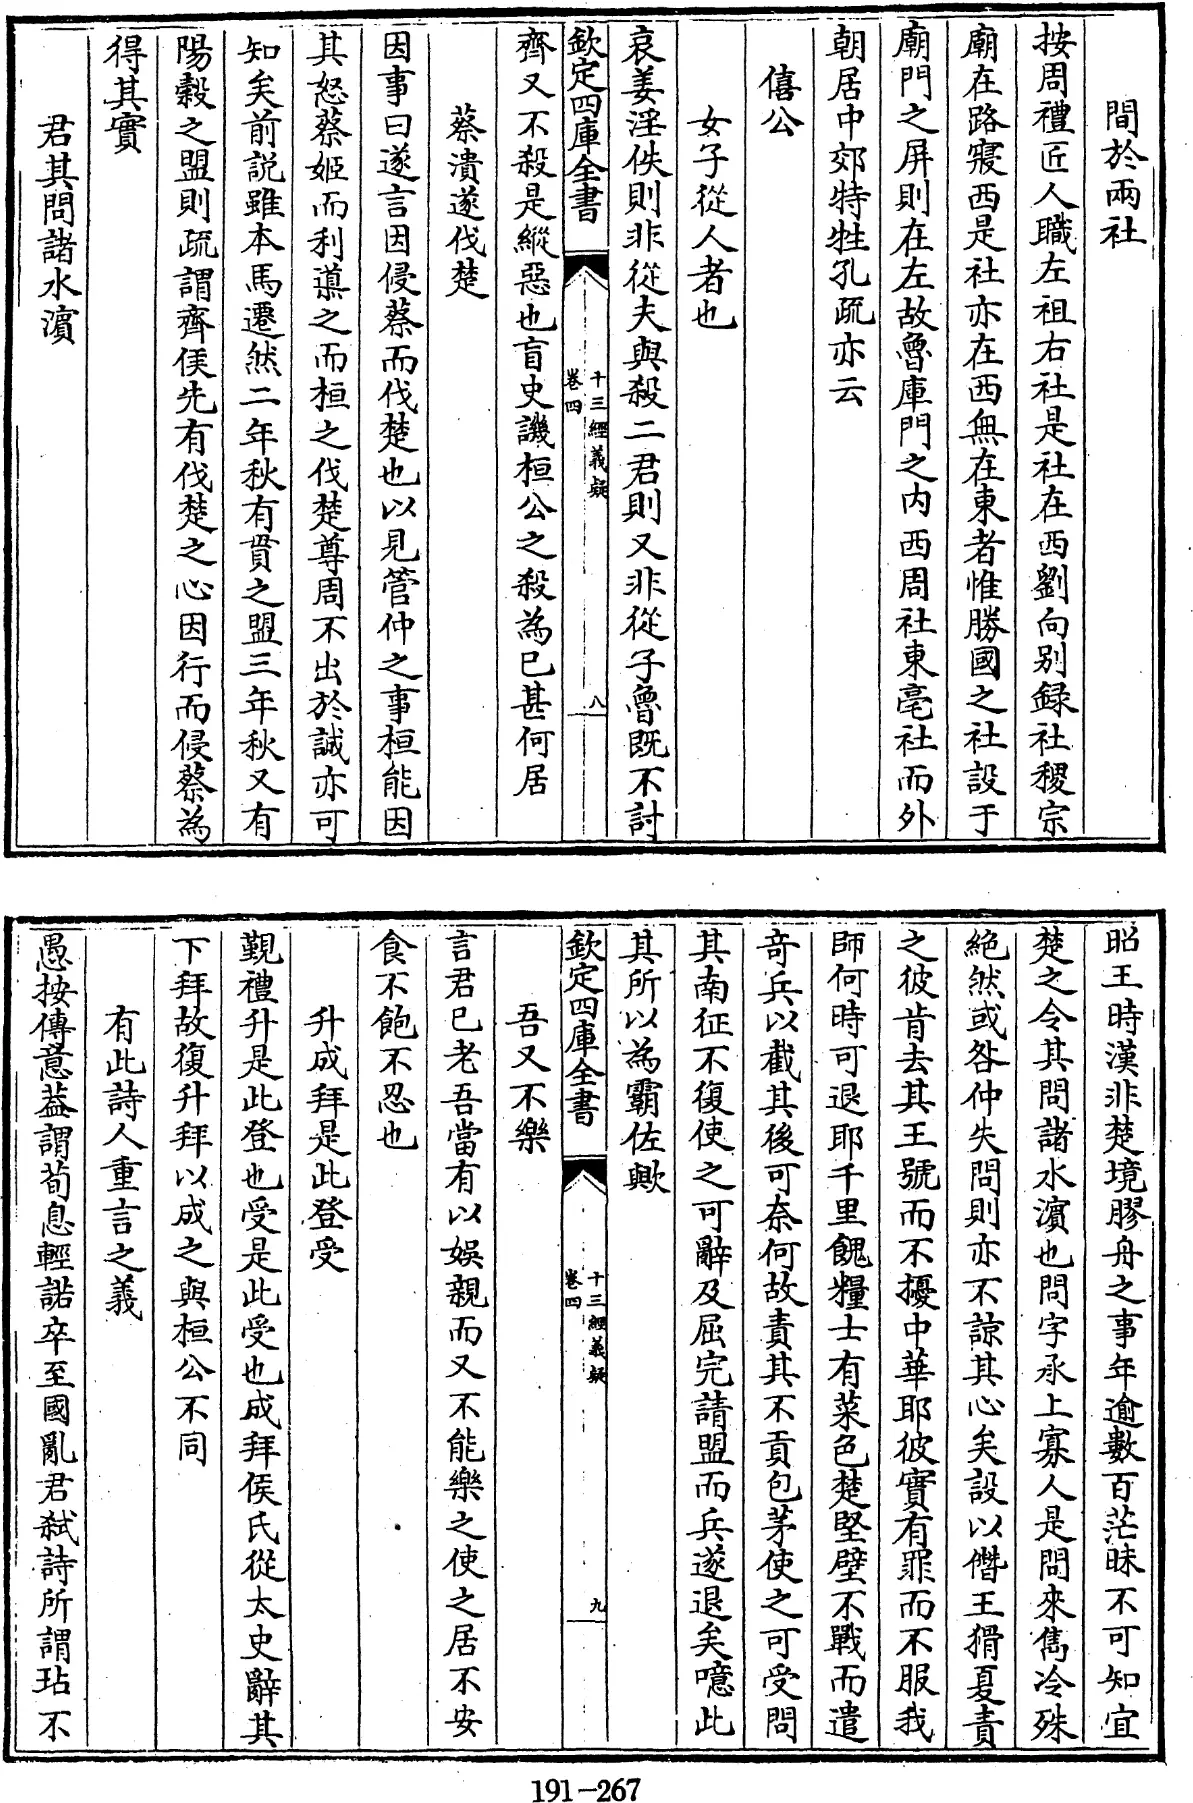 間於兩社
按周禮匠人職左祖右社是社在西劉向别録社稷宗
廟在路寢西是社亦在西無在東者惟勝國之社設于
廟門之屏則在左故魯庫門之内西周社東亳社而外
朝居中郊特牲孔疏亦云
僖公
女子從人者也
哀姜淫佚則非從夫與殺二君則又非從子魯既不討
欽定四庫全書
十三經義疑
卷四
八
齊又不殺是縱惡也盲史譏桓公之殺為已甚何居
蔡潰遂伐楚
因事曰遂言因侵蔡而伐楚也以見管仲之事桓能因
其怒蔡姬而利導之而桓之伐楚尊周不出於誠亦可
知矣前説雖本馬遷然二年秋有貫之盟三年秋又有
陽穀之盟則疏謂齊侯先有伐楚之心因行而侵蔡為
得其實
君其問諸水濱
昭王時漢非楚境膠舟之事年逾數百茫昧不可知宜
楚之令其問諸水濱也問字承上寡人是問來雋冷殊
絶然或咎仲失問則亦不諒其心矣設以僭王猾夏責
之彼肯去其王號而不擾中華耶彼實有罪而不服我
師何時可退耶千里餽糧士有菜色楚堅壁不戰而遣
奇兵以截其後可奈何故責其不貢包茅使之可受問
其南征不復使之可辭及屈完請盟而兵遂退矣噫此
其所以為霸佐歟
欽定四庫全書
十三經義疑
卷四
九
吾又不樂
言君已老吾當有以娛親而又不能樂之使之居不安
食不飽不忍也
升成拜是此登受
覲禮升是此登也受是此受也成拜侯氏從太史辭其
下拜故復升拜以成之與桓公不同
有此詩人重言之義
愚按傳意葢謂荀息輕諾卒至國亂君弑詩所謂玷不
191-267